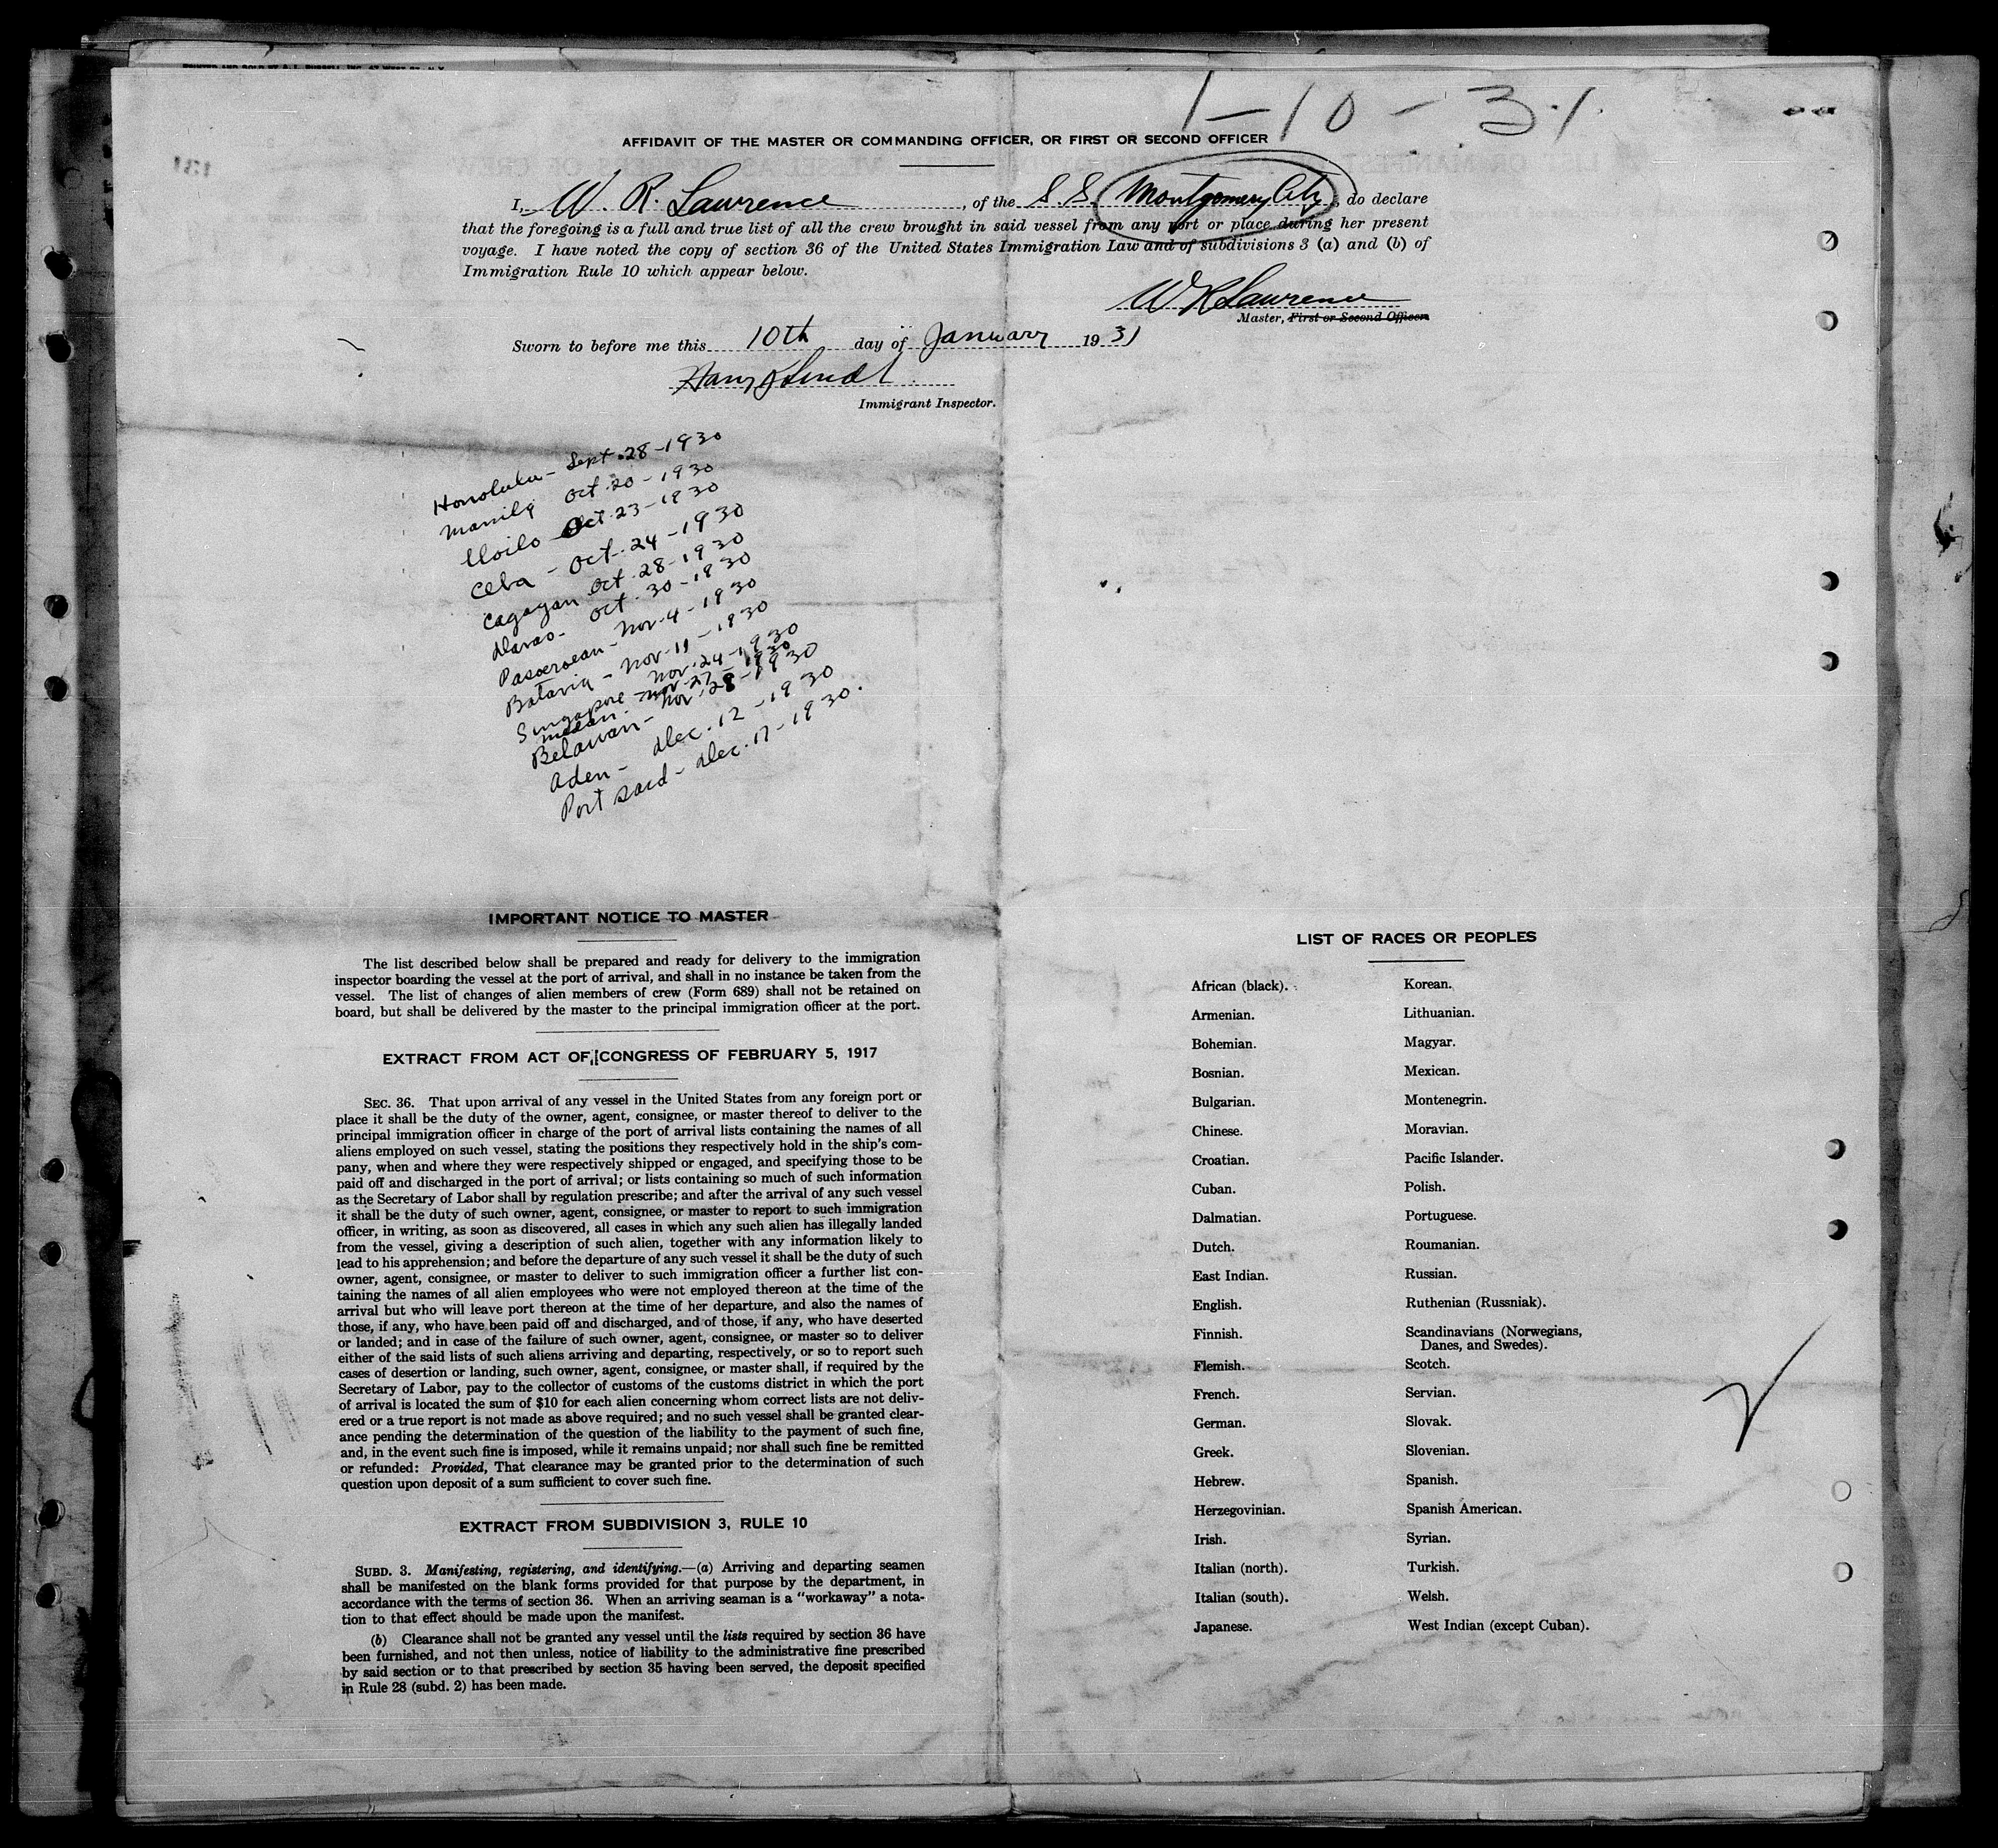 PRINTED AND SOLD BY A. L. RUSSELL, INC., 47 WEST ST., N.Y.
1-10-31.
AFFIDAVIT OF THE MASTER OR COMMANDING OFFICER, OR FIRST OR SECOND OFFICER
I, W. R. Lawrence, of the S.S. Montgomery City, do declare
that the foregoing is a full and true list of all the crew brought in said vessel from any port or place during her present
voyage. I have noted the copy of section 36 of the United States Immigration Law and of subdivisions 3 (a) and (b) of
Immigration Rule 10 which appear below.
W R Lawrence
Master, First or Second Officer.
Sworn to before me this 10th day of January 1931
Immigrant Inspector.
Honolulu - Sept. 28 - 1930
Manila Oct. 20 - 1930
Iloilo - Oct. 23 - 1930
Cebu - Oct. 24 - 1930
Cagayan Oct. 28 - 1930
Davao - Oct. 30 - 1930
Pasoeroean - Nov. 4 - 1930
Batavia - Nov. 11 - 1930
Singapore - Nov. 24 - 1930
Medan - Nov. 27 - 1930
Belawan - Nov. 28 - 1930
Aden - Dec. 12 - 1930
Port Said - Dec. 17 - 1930.
IMPORTANT NOTICE TO MASTER
The list described below shall be prepared and ready for delivery to the immigration
inspector boarding the vessel at the port of arrival, and shall in no instance be taken from the
vessel. The list of changes of alien members of crew (Form 689) shall not be retained on
board, but shall be delivered by the master to the principal immigration officer at the port.
EXTRACT FROM ACT OF CONGRESS OF FEBRUARY 5, 1917
SEC. 36. That upon arrival of any vessel in the United States from any foreign port or
place it shall be the duty of the owner, agent, consignee, or master thereof to deliver to the
principal immigration officer in charge of the port of arrival lists containing the names of all
aliens employed on such vessel, stating the positions they respectively hold in the ship's com-
pany, when and where they were respectively shipped or engaged, and specifying those to be
paid off and discharged in the port of arrival; or lists containing so much of such information
as the Secretary of Labor shall by regulation prescribe; and after the arrival of any such vessel
it shall be the duty of such owner, agent, consignee, or master to report to such immigration
officer, in writing, as soon as discovered, all cases in which any such alien has illegally landed
from the vessel, giving a description of such alien, together with any information likely to
lead to his apprehension; and before the departure of any such vessel it shall be the duty of such
owner, agent, consignee, or master to deliver to such immigration officer a further list con-
taining the names of all alien employees who were not employed thereon at the time of the
arrival but who will leave port thereon at the time of her departure, and also the names of
those, if any, who have been paid off and discharged, and of those, if any, who have deserted
or landed; and in case of the failure of such owner, agent, consignee, or master so to deliver
either of the said lists of such aliens arriving and departing, respectively, or so to report such
cases of desertion or landing, such owner, agent, consignee, or master shall, if required by the
Secretary of Labor, pay to the collector of customs of the customs district in which the port
of arrival is located the sum of $10 for each alien concerning whom correct lists are not deliv-
ered or a true report is not made as above required; and no such vessel shall be granted clear-
ance pending the determination of the question of the liability to the payment of such fine,
and, in the event such fine is imposed, while it remains unpaid; nor shall such fine be remitted
or refunded: Provided, That clearance may be granted prior to the determination of such
question upon deposit of a sum sufficient to cover such fine.
EXTRACT FROM SUBDIVISION 3, RULE 10
SUBD. 3. Manifesting, registering, and identifying.—(a) Arriving and departing seamen
shall be manifested on the blank forms provided for that purpose by the department, in
accordance with the terms of section 36. When an arriving seaman is a "workaway" a nota-
tion to that effect should be made upon the manifest.
(b) Clearance shall not be granted any vessel until the lists required by section 36 have
been furnished, and not then unless, notice of liability to the administrative fine prescribed
by said section or to that prescribed by section 35 having been served, the deposit specified
in Rule 28 (subd. 2) has been made.
LIST OF RACES OR PEOPLES
African (black).
Armenian.
Bohemian.
Bosnian.
Bulgarian.
Chinese.
Croatian.
Cuban.
Dalmatian.
Dutch.
East Indian.
English.
Finnish.
Flemish.
French.
German.
Greek.
Hebrew.
Herzegovinian.
Irish.
Italian (north).
Italian (south).
Japanese.
Korean.
Lithuanian.
Magyar.
Mexican.
Montenegrin.
Moravian.
Pacific Islander.
Polish.
Portuguese.
Roumanian.
Russian.
Ruthenian (Russniak).
Scandinavians (Norwegians,
Danes, and Swedes).
Scotch.
Servian.
Slovak.
Slovenian.
Spanish.
Spanish American.
Syrian.
Turkish.
Welsh.
West Indian (except Cuban).